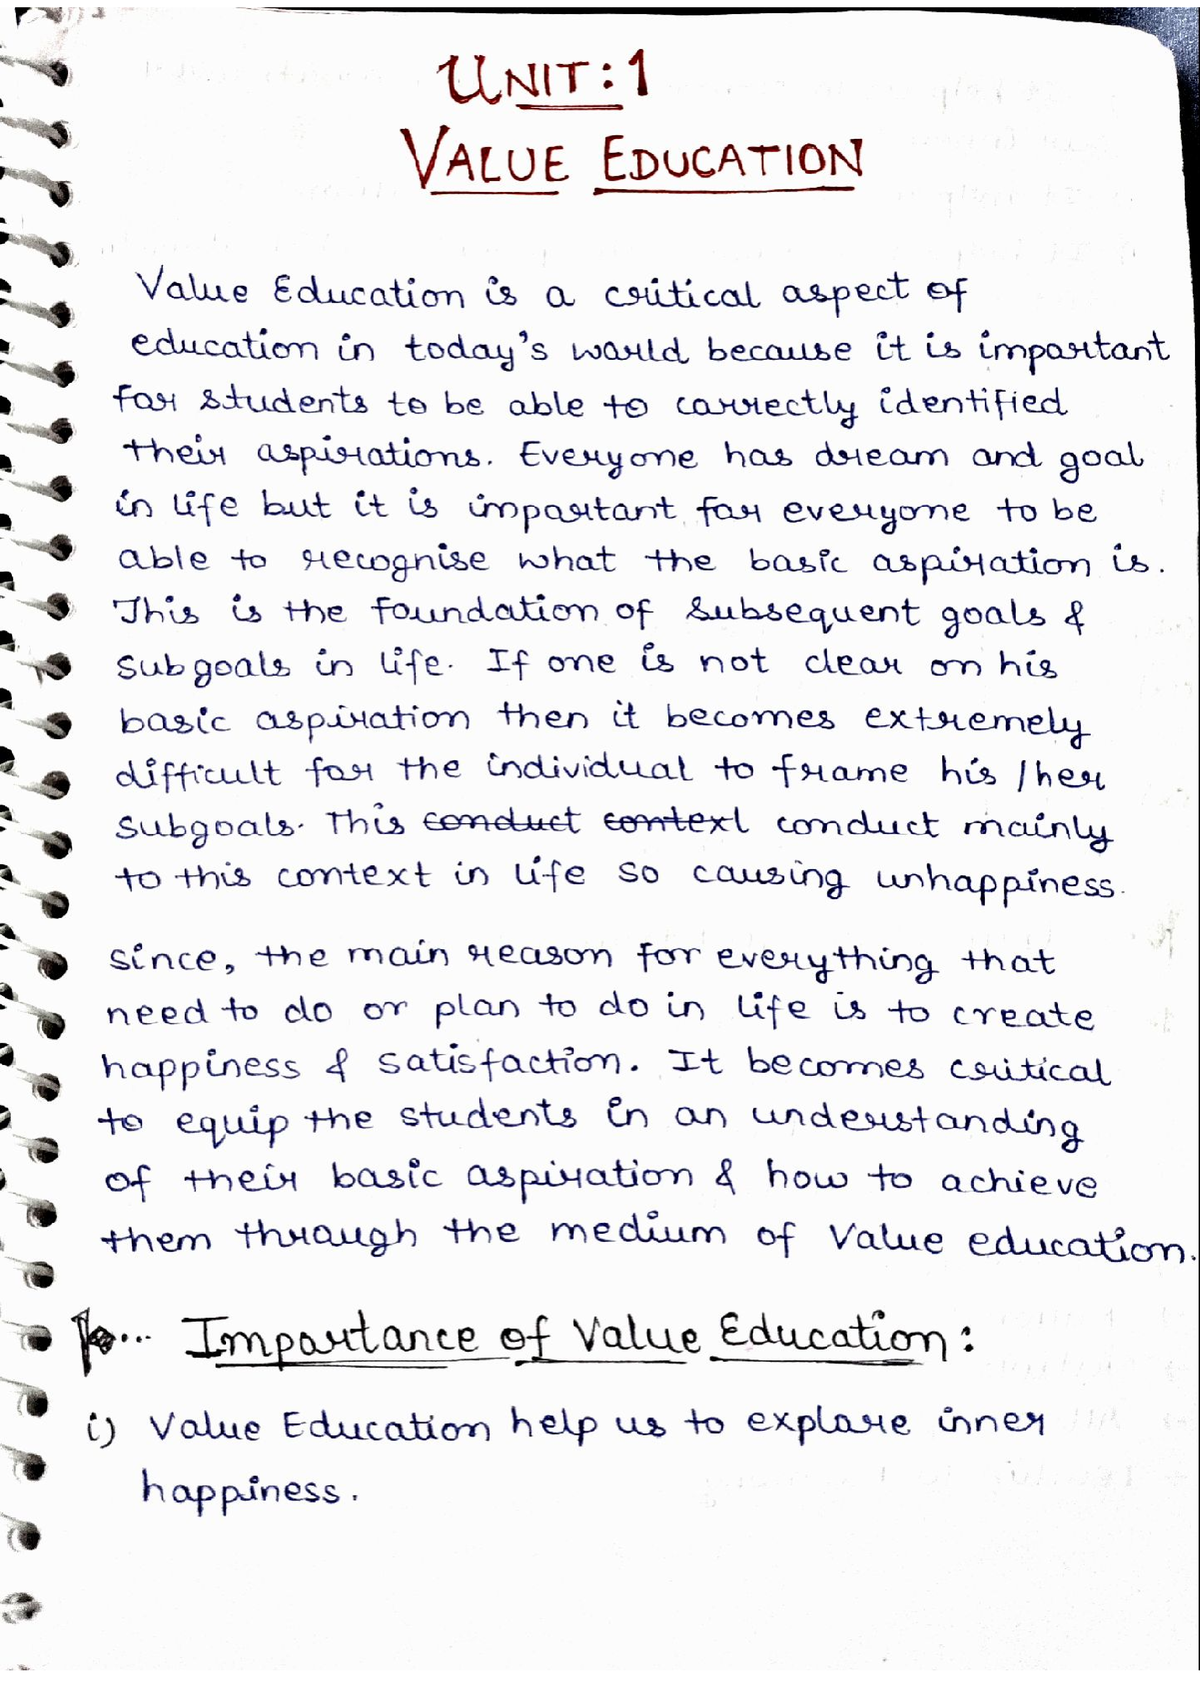 UNIT: 1
VALUE EDUCATION
Value Education is a critical aspect of
education in today's world because it is important
for students to be able to correctly identified
their aspirations. Everyone has dream and goal
in life but it is important for everyone to be
able to recognise what the basic aspiration is.
This is the foundation of subsequent goals &
subgoals in life. If one is not clear on his
basic aspiration then it becomes extremely
difficult for the individual to frame his /her
subgoals. This conduct context conduct mainly
to this context in life so causing unhappiness.
since, the main reason for everything that
need to do or plan to do in life is to create
happiness & satisfaction. It becomes critical
to equip the students in an understanding
of their basic aspiration & how to achieve
them through the medium of Value education.
Importance of Value Education:
i) Value Education help us to explore inner
happiness.